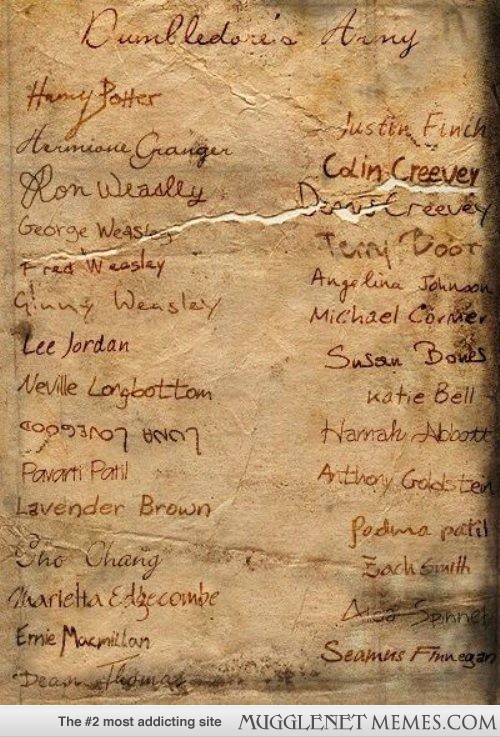 Dumbledore's Army
Harry Potter
Hermione Granger
Ron Weasley
George Weasley
Fred Weasley
Ginny Weasley
Lee Jordan
Neville Longbottom
LUNA LOVEGOOD
Pavarti Patil
Lavender Brown
Cho Chang
Marietta Edgecombe
Ernie Macmillan
Dean Thomas
Justin Finch
Colin Creevey
Dennis Creevey
Terry Boot
Angelina Johnson
Michael Corner
Susan Bones
Katie Bell
Hannah Abbott
Anthony Goldstein
Padma patil
Zach Smith
Spinnet
Seamus Finnegan
The #2 most addicting site
MUGGLENETMEMES.COM